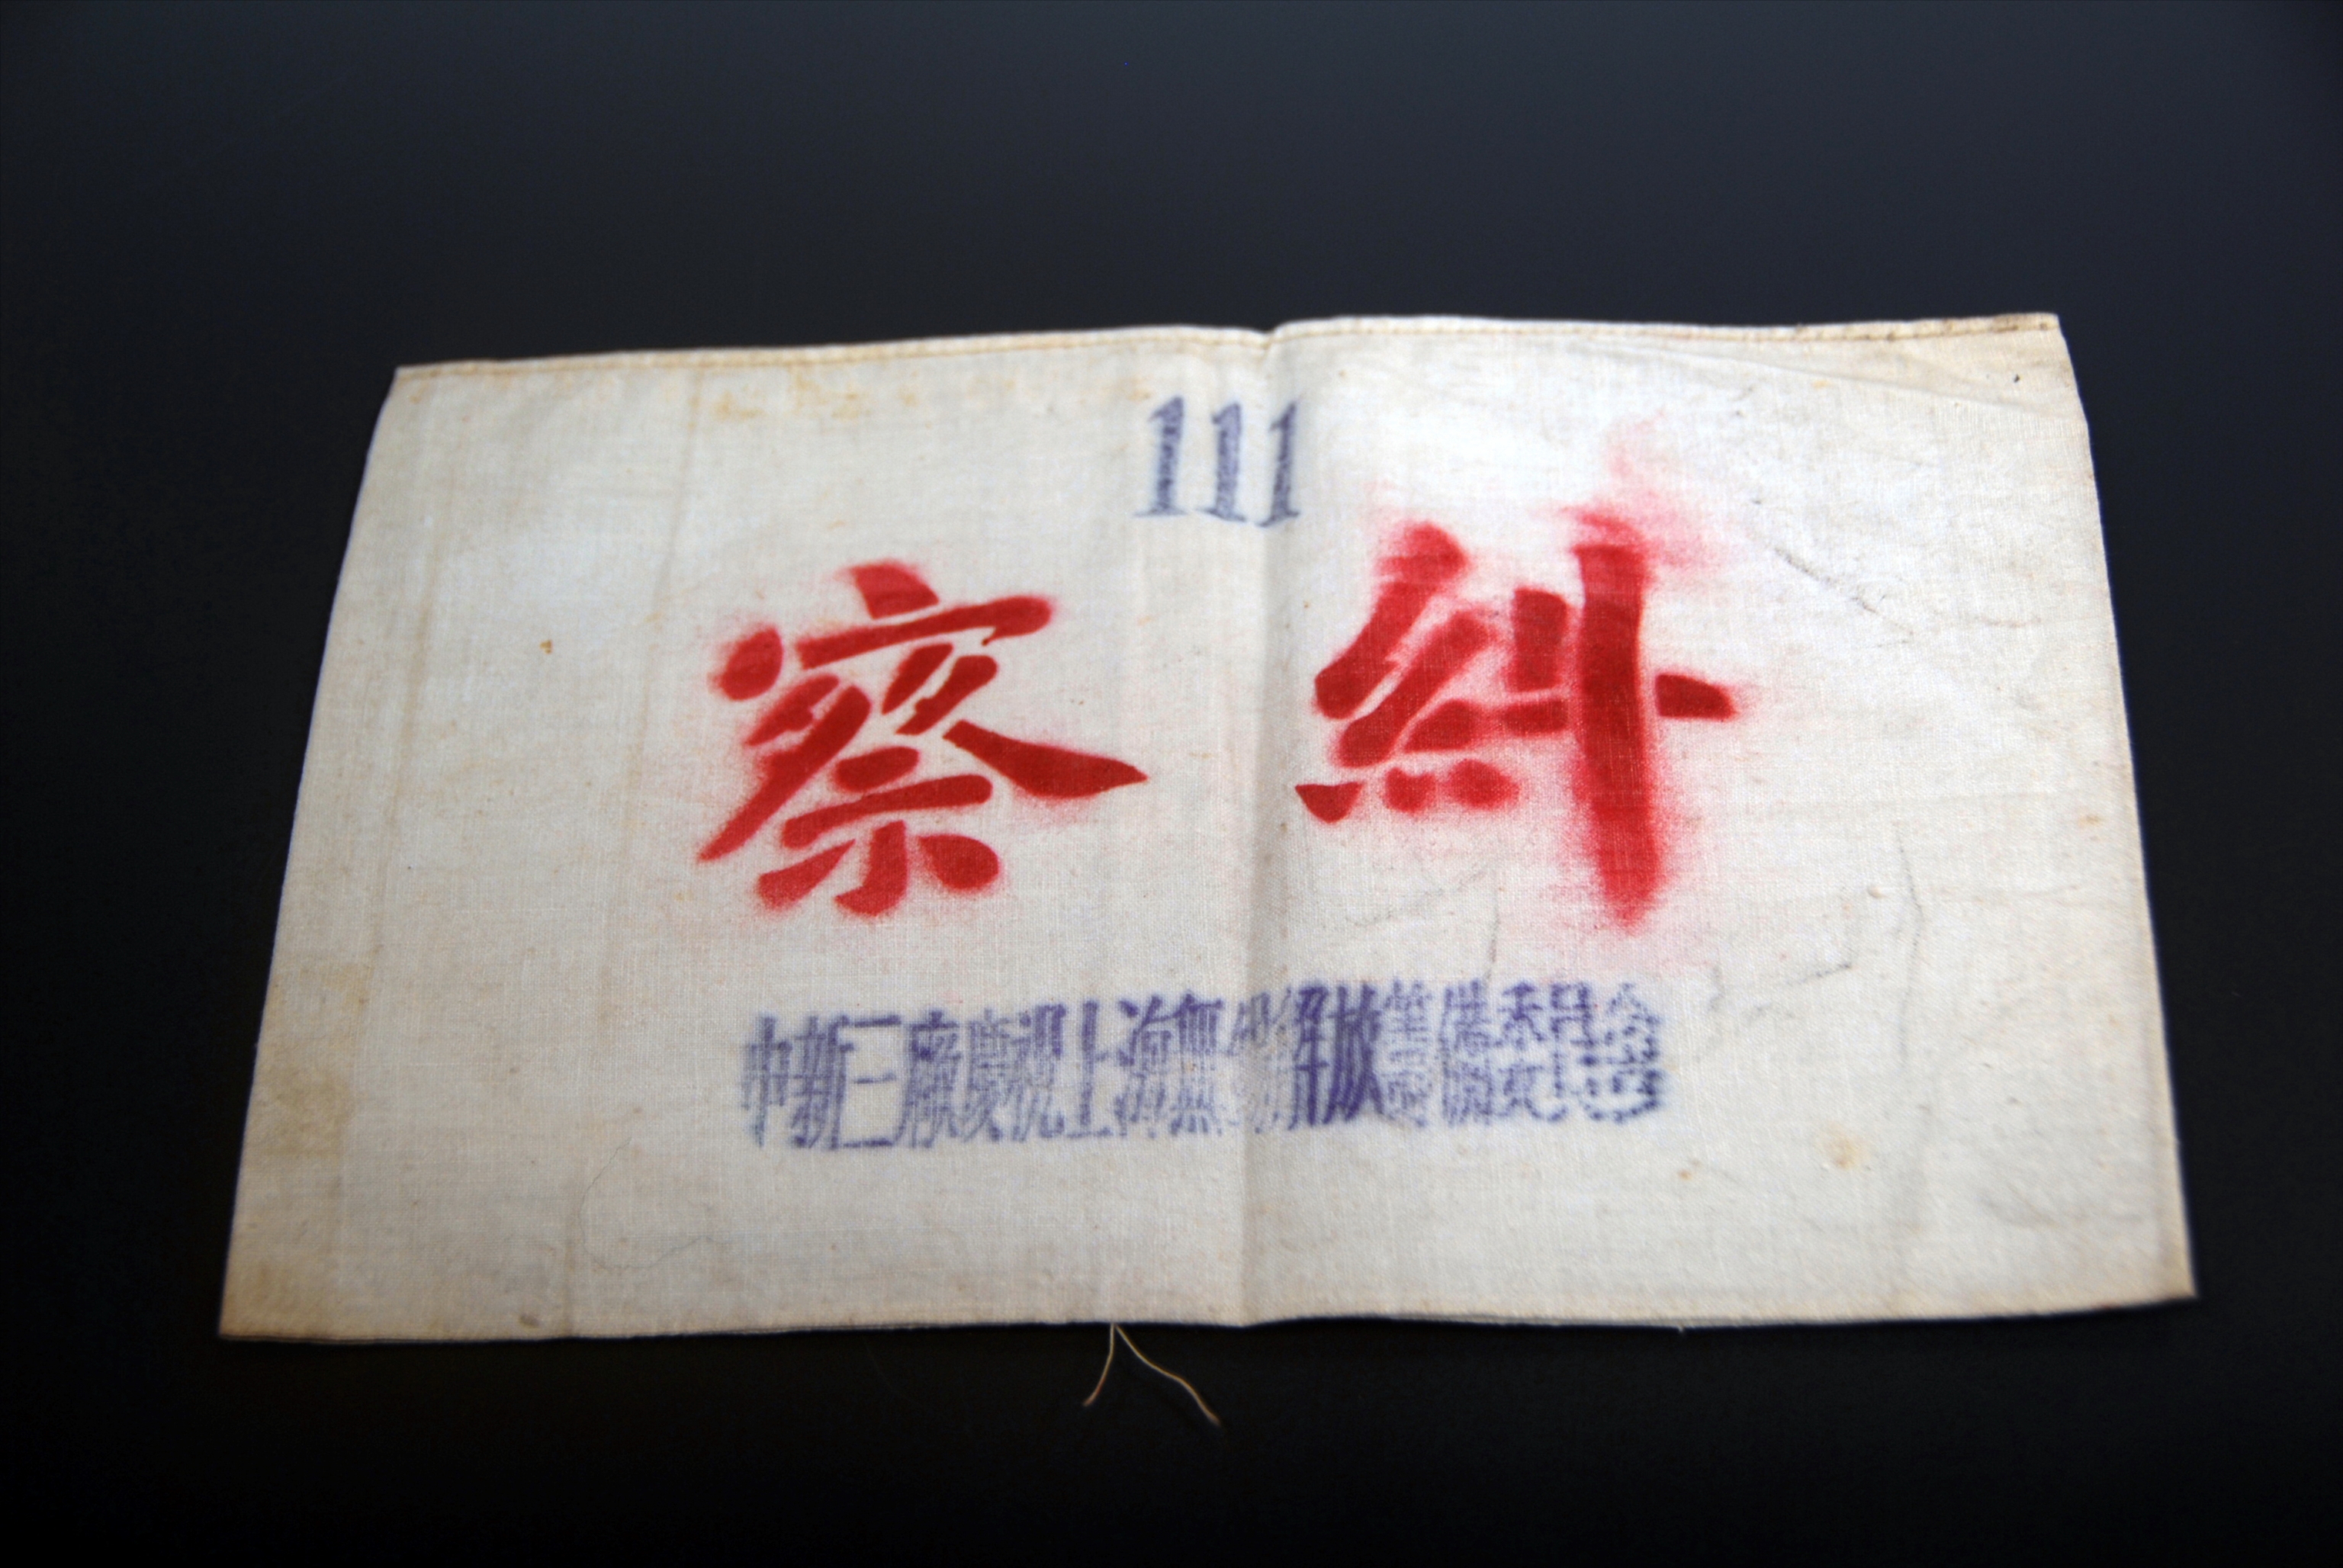 111
糾察
申新三廠慶祝上海無錫解放籌備委員會